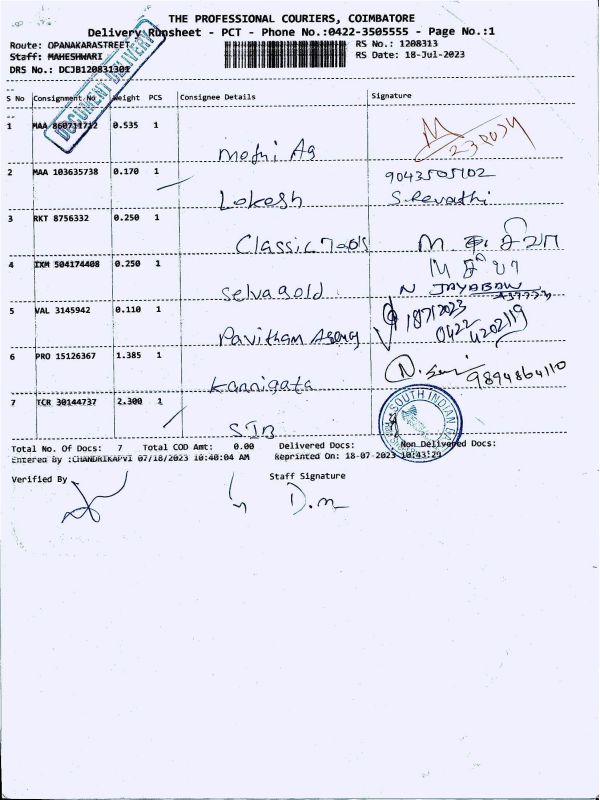 THE PROFESSIONAL COURIERS, COIMBATORE
Delivery Runsheet - PCT - Phone No.:0422-3505555 - Page No.:1
Route: OPANAKARASTREET
RS No.: 1208313
Staff: MAHESHWARI
RS Date: 18-Jul-2023
DRS No.: DCJB120831301
DOCUMENT DELIVERY
S No Consignment No Weight PCS Consignee Details Signature
1 MAA 860711712 0.535 1
2 MAA 103635738 0.170 1
9043505702
Lokesh S. Revathi
3 RKT 8756332 0.250 1
Classic Tools
4 IXM 504174408 0.250 1
Selvagold N JAYABAW
5 VAL 3145942 0.110 1
18/7/2023
0422
4202119
Pavitham Agency
6 PRO 15126367 1.385 1
9894864110
Kannigata
7 TCR 30144737 2.300 1
SIB
SOUTH INDIAN
Total No. Of Docs: 7 Total COD Amt: 0.00 Delivered Docs: Non Delivered Docs:
Entered By :CHANDRIKAPVI 07/18/2023 10:40:04 AM Reprinted On: 18-07-2023 10:43:29
Verified By Staff Signature